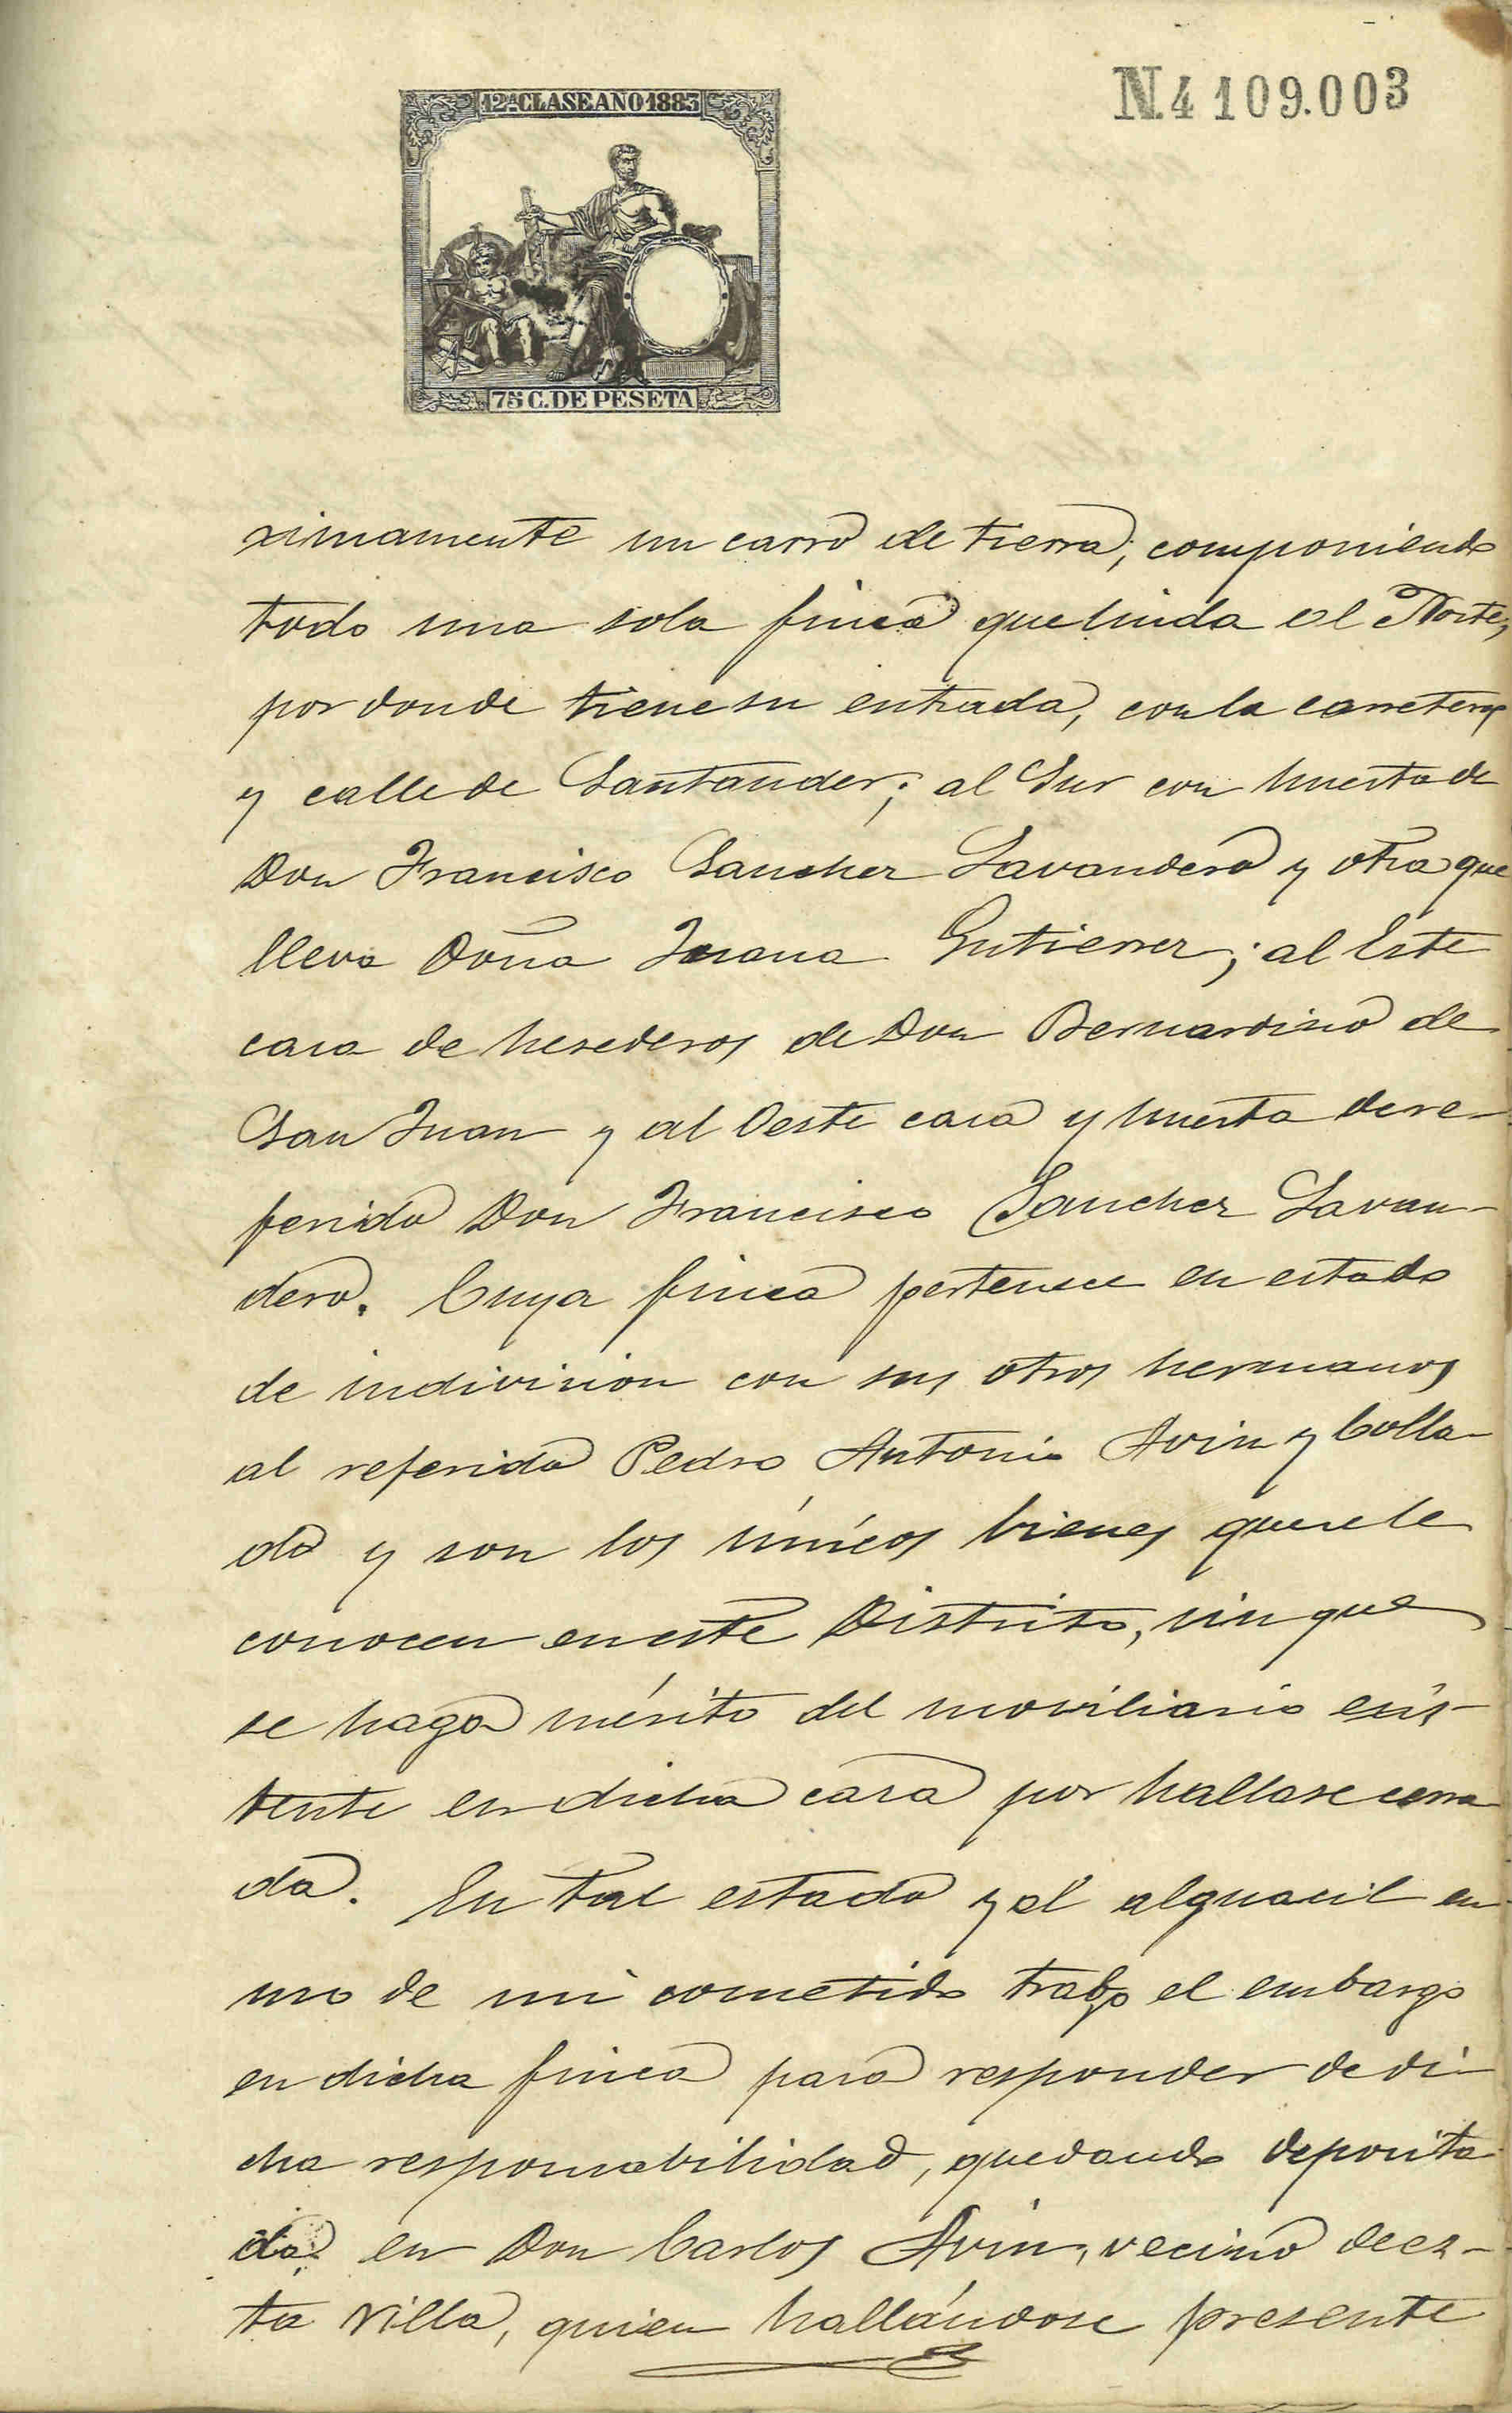 N.4109.003
12ª CLASE AÑO 1883
75 C. DE PESETA
ximamente un carro de tierra, componiendo
todo una sola finca que linda el Norte,
por donde tiene su entrada, con la carretera
y calle de Santander; al Sur con huerta de
Don Francisco Sanchez Lavandero y otra que
lleva Doña Juana Gutierrez; al Este
casa de herederos de Don Bernardino de
San Juan y al Oeste casa y huerta de re-
ferido Don Francisco Sanchez Lavan-
dero. Cuya finca pertenece en estado
de indivision con sus otros hermanos
al referido Pedro Antonio Avin y Colla-
do y son los únicos bienes que se le
conocen en este Distrito, sin que
se haga mérito del moviliario esis-
tente en dicha casa por hallase cerra
da. En tal estado y el alguacil en
uso de mi cometido trabo el embargo
en dicha finca para responder de di-
cha responsabilidad, quedando deposita
da en Don Carlos Avin, vecino de es-
ta Villa, quien hallándose presente